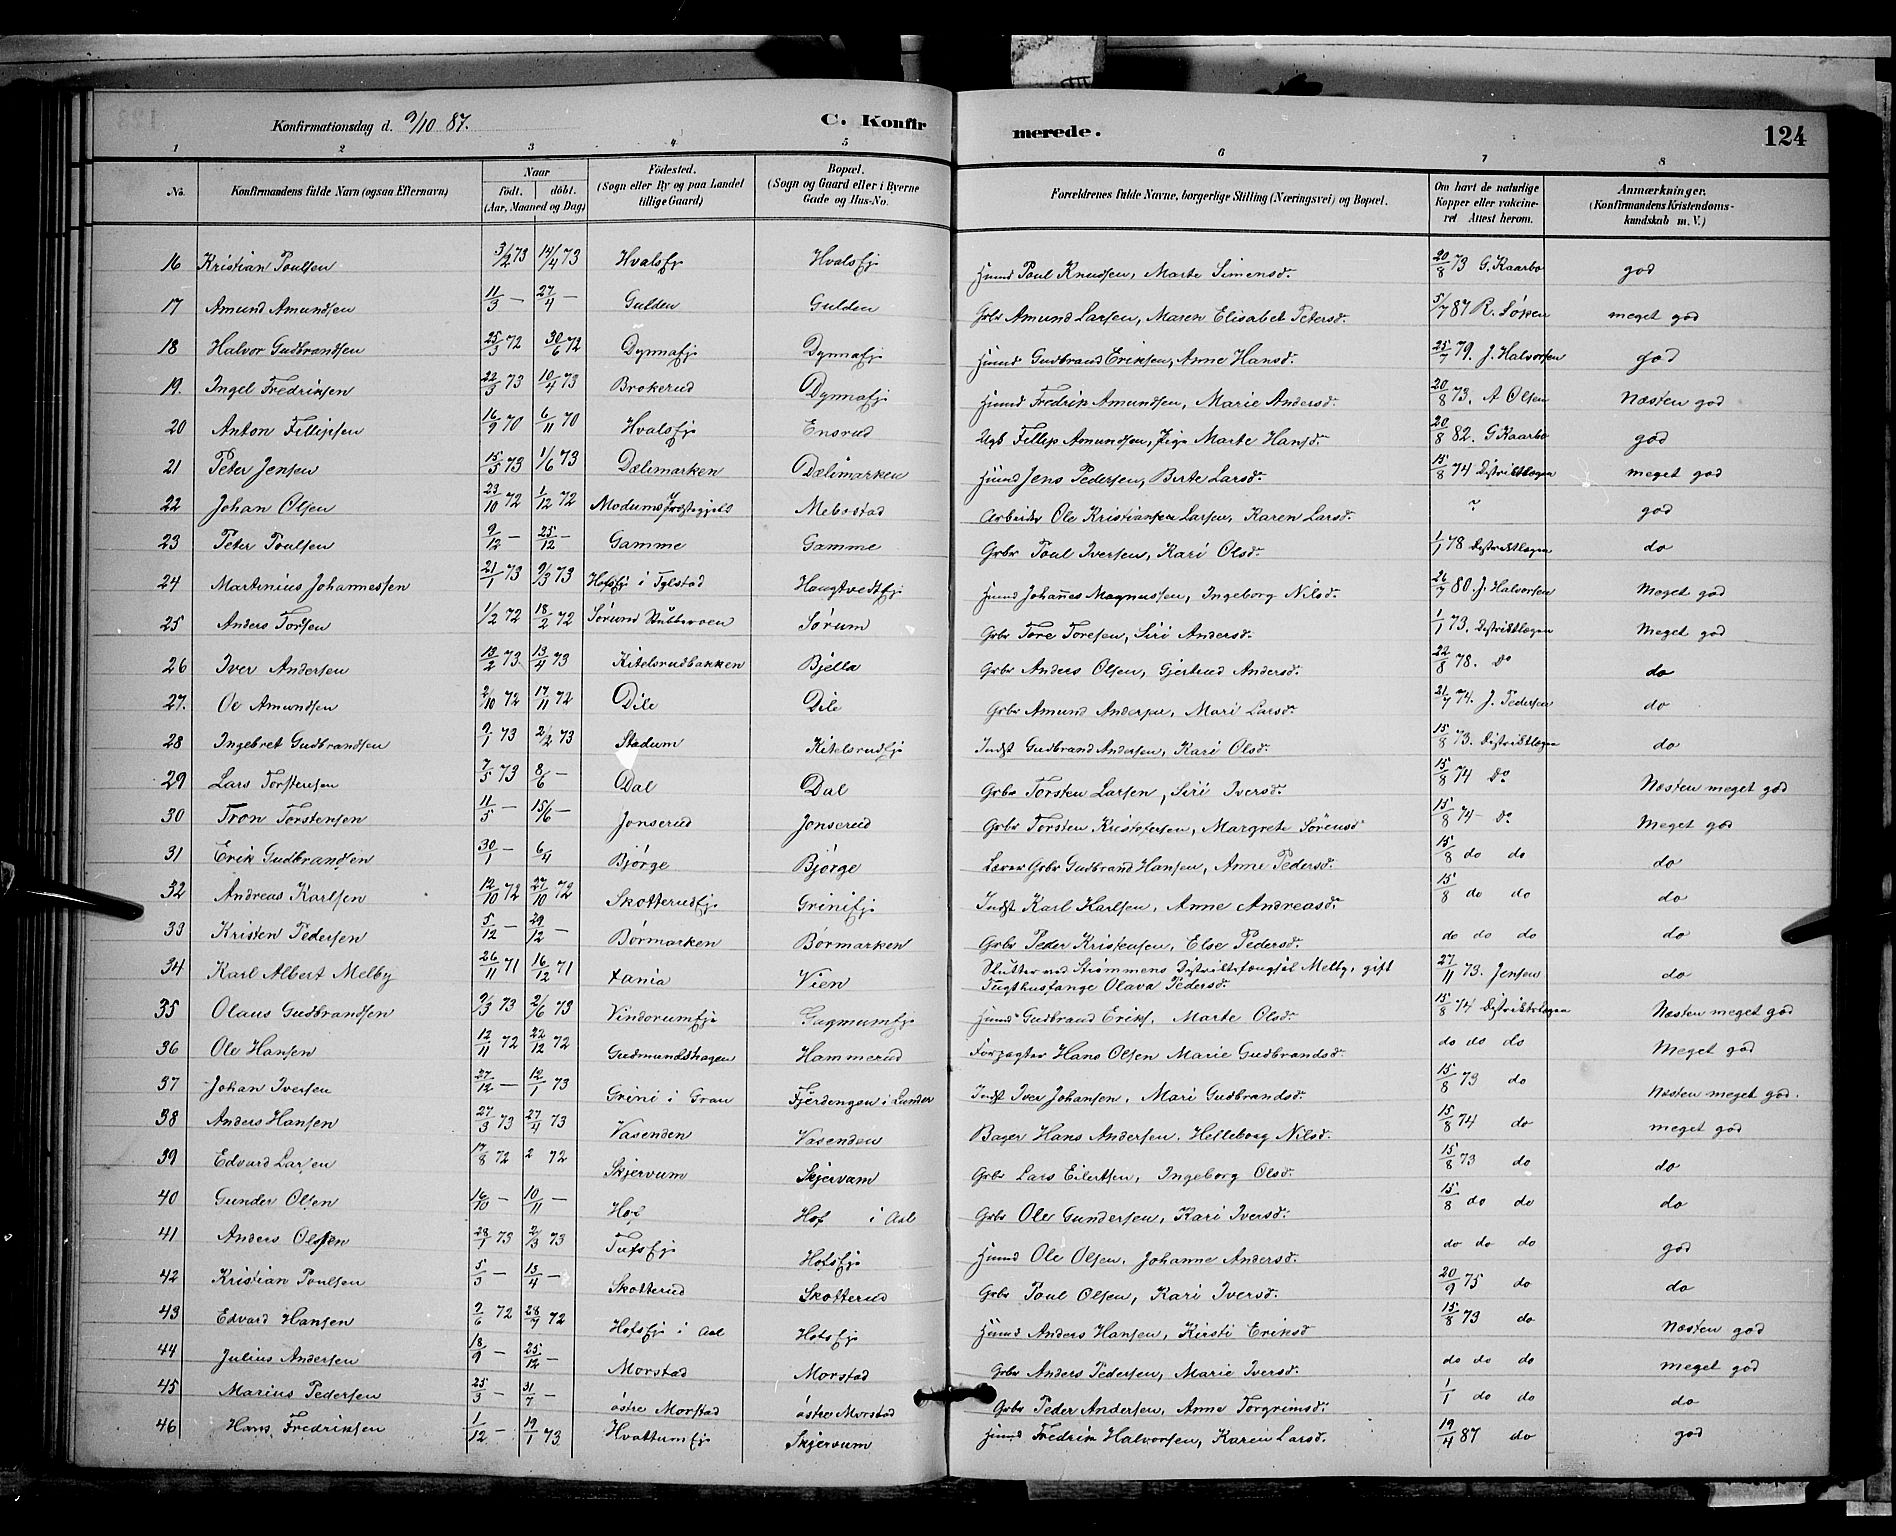 Konfirmationsdag d. 9/10 87.
C. Konfirmerede.
124
1 2 3 4 5 6 7 8
No. Konfirmandens fulde Navn (ogsaa Efternavn) Naar født. døbt. (Aar, Maaned og Dag) Födested. (Sogn eller By og paa Landet tillige Gaard) Bopæl. (Sogn og Gaard eller i Byerne Gade og Hus-No. Forældrenes fulde Navne, borgerlige Stilling (Næringsvei) og Bopæl. Om havt de naturlige Kopper eller vakcineret Attest herom. Anmærkninger. (Konfirmandens Kristendomskundskab m. V.)
16 Kristian Poulsen 3/2 73 14/4 73 Hvalsej Hvalsej Huusm Poul Knudsen, Marte Simensd. 20/8 73 G. Kaarbo god
17 Amund Amundsen 11/3 — 27/4 — Gulden Gulden Gbr Amund Larsen, Maren Elisabet Petersd. 5/7 87 R. meget god
18 Halvor Gudbrandsen 25/3 72 30/6 72 Dynnaej Dynnaej Huusm Gudbrand Eriksen, Anne Hansd. 25/7 79. J. Halvorsen god
19. Ingel Fredriksen 22/3 73 10/4 73 Brokerud Dynnaej Huusm Fredrik Amundsen, Marie Andersd. 20/8 73. A Olsen Næsten god
20 Anton Fillipsen 16/9 70 6/11 70 Hvalsej Ensrud Ugb Fillip Amundsen, Pige Marte Hansd. 20/8 82. G Kaarbo god
21 Peter Jensen 15/5 73 1/6 73 Dælimarken Dælimarken Huusm Jens Pedersen, Berte Larsd. 15/8 74 Distriktlægen meget god
22 Johan Olsen 23/10 72 1/12 72 Modums Præstegjeld Mebostad Arbeider Ole Kristiansen Larsen, Karen Larsd. ? god
23 Peter Poulsen 9/12 — 25/12 — Gamme Gamme Gbr Poul Iversen, Kari Olsd. 1/1 78 Distriktlægen do
24 Martinius Johannessen 21/1 73 9/3 73 Hofsej i Tylstad Haugtvedtej Huusm Johannes Magnussen, Ingeborg Nilsd. 26/7 80. J. Halvorsen Meget god
25 Anders Torsen 1/2 72 18/2 72 Sørum Stubberoen Sørum Gbr Tore Toresen, Siri Andersd. 1/1 73. Distriktlægen Meget god
26 Iver Andersen 13/2 73 13/4 73 Kitelsrudbakken Bjella Gbr Anders Olsen, Gjertrud Andersd. 22/8 78. Do do
27. Oe Amundsen 2/10 72 17/11 72 Dile Dile Gbr Amund Andersen, Mari Larsd. 21/7 74. J. Pedersen do
28 Ingebret Gudbrandsen 9/1 73 2/2 73 Stadum Kitelsrudej Indst Gudbrand Andersen, Kari Olsd. 15/8 73. Distriktlægen do
29 Lars Torstensen 7/5 73 8/6 — Dal Dal Gbr Torsten Larsen, Siri Iversd. 15/8 74 Do Næsten meget god
30 Tron Torstensen 11/5 — 15/6 — Jonserud Jonserud Gbr Torsten Kristofersen, Margrete Sørensd 15/8 74 Do Meget god
31 Erik Gudbrandsen 30/1 — 6/4 Bjørge Bjørge Lærer Gbr Gudbrand Hansen, Anne Pedersd. 15/8 do do do
32 Andreas Karlsen 12/10 72 27/10 72 Skotterudej Griniej Indst Karl Karlsen, Anne Andreasd. 15/8 do do do
33 Kristen Pedersen 5/12 — 29/12 — Børmarken Børmarken Gbr Peder Kristensen, Else Pedersd. do do do do
34 Karl Albert Melby 26/11 71 16/12 71 Kania Vien Slutter ved Strømmens Distriktsfængsel Melby, gift Tugthusfange Olava Pedersd. 27/11 73. Jensen do
35 Olaus Gudbrandsen 9/3 73 2/6 73 Vindorumej Gagnumej Huusm Gudbrand Eriks. Marte Olsd. 15/8 74 Distriktlægen Næsten meget god
36 Ole Hansen 12/11 72 22/12 72 Gudmundshagen Hammerud Forpagter Hans Olsen Marie Gudbrandsd. do do do Meget god
37 Johan Iversen 27/12 — 12/1 73 Grini i Gran Fjerdengen i Lunder Indst Iver Johansen, Mari Gudbrandsd. 15/8 73 do Næsten meget god.
38 Anders Hansen 27/3 73 27/4 73 Vasenden Vasenden Bager Hans Andersen, Helleborg Nilsd. 15/8 74 do meget god
39 Edvard Larsen 17/8 72 2 72 Skjervum Skjervum Gbr Lars Eilertsen, Ingeborg Olsd. 15/8 73 do do
40 Gunder Olsen 16/10 — 10/11 — Hof Hof i Aal Gbr Ole Gundersen, Kari Iversd. 15/8 do do do
41 Anders Olsen 28/1 73 2/3 73 Tufsej Hofsej Huusm Ole Olsen, Johanne Andersd. do do do god
42 Kristian Poulsen 5/3 — 13/4 — Skotterud Skotterud Gbr Poul Olsen, Kari Iversd. 20/9 75 do do
43 Edvard Hansen 2/6 72 28/9 72 Hofsej i Aal Hofsej Huusm Anders Hansen, Kirsti Eriksd 15/8 73 do Næsten god
44 Julius Andersen 18/9 — 25/12 — Morstad Morstad Gbr Anders Pedersen, Marie Iversd. do do do meget god
45 Marius Pedersen 25/3 — 31/7 — østre Morstad østre Morstad Gbr Peder Andersen, Anne Torgrimsd. 1/1 do do do
46 Hans Fredriksen 1/12 — 19/1 73 Hvattumej Skjervum Huusm Fredrik Halvorsen, Karen Larsd. 19/4 87 do god